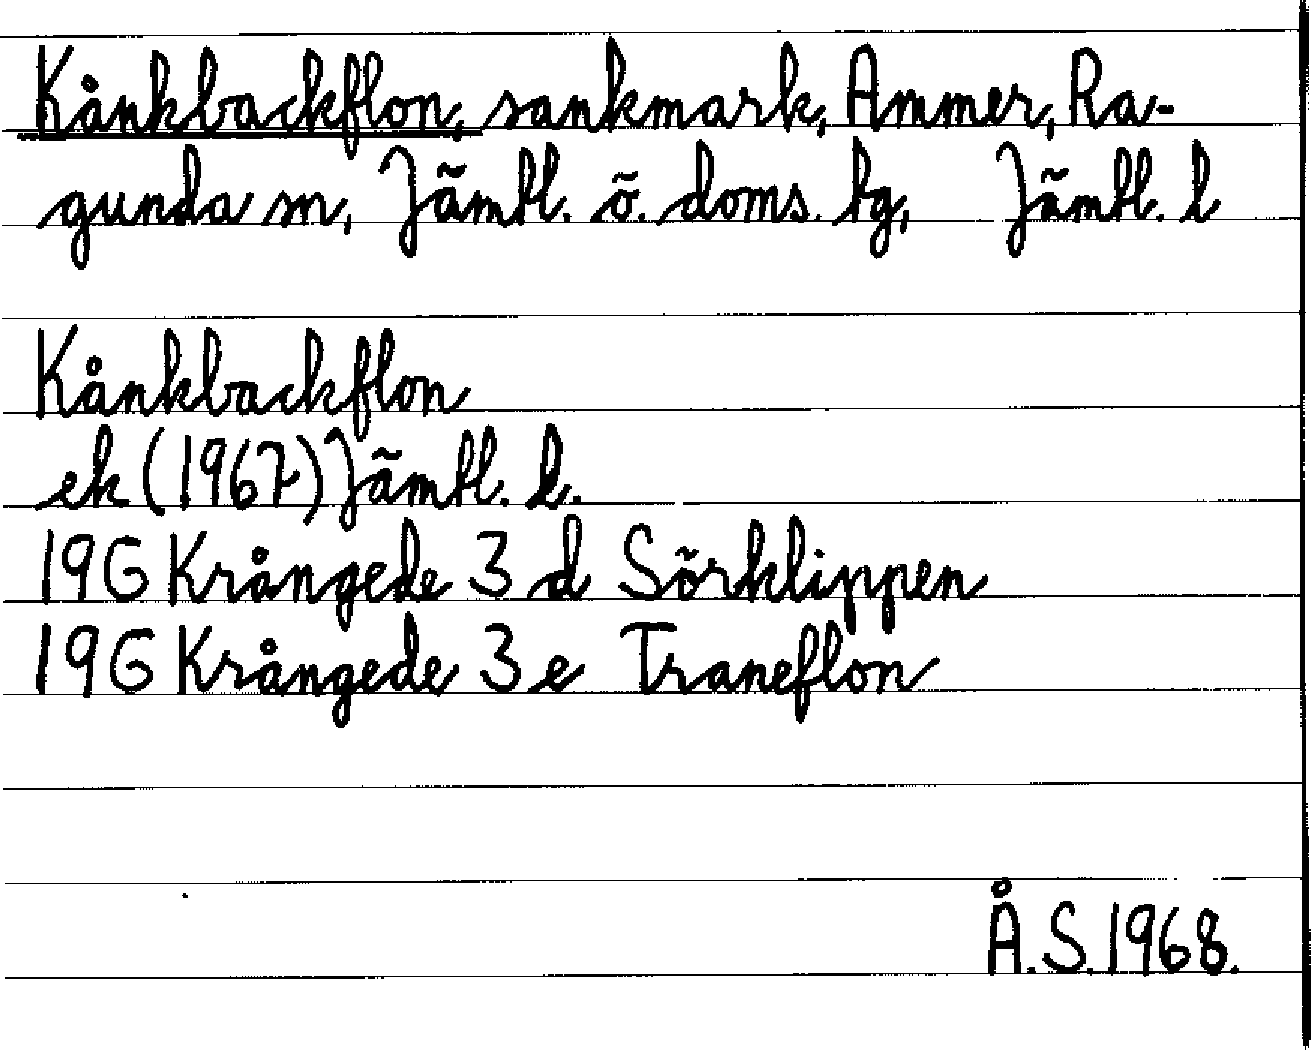 Kånkbackflon, sankmark, Ammer, Ra-
gunda sn, Jämtl. ö. doms. tg, Jämtl. l
Kånkbackflon
ek (1967) Jämtl. l.
19G Krångede 3 d Sörklippen
19G Krångede 3 e Traneflon
Å.S. 1968.